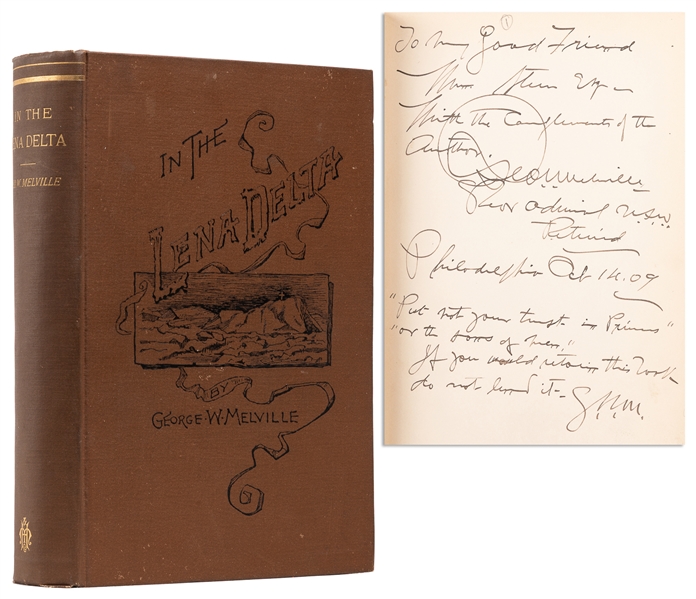 IN THE
LENA DELTA
G. W. MELVILLE
IN THE
LENA DELTA
BY
GEORGE · W · MELVILLE
1
To my Good Friend
Stein Esq
With the Compliments of the
Author.
Geo W Melville
Rear Admiral U.S.N.
Retired
Philadelphia Oct 14. 09
"Put not your trust in Princes"
"or the sons of men,"
If you would retain this Book
do not lend it-
G.W.M.